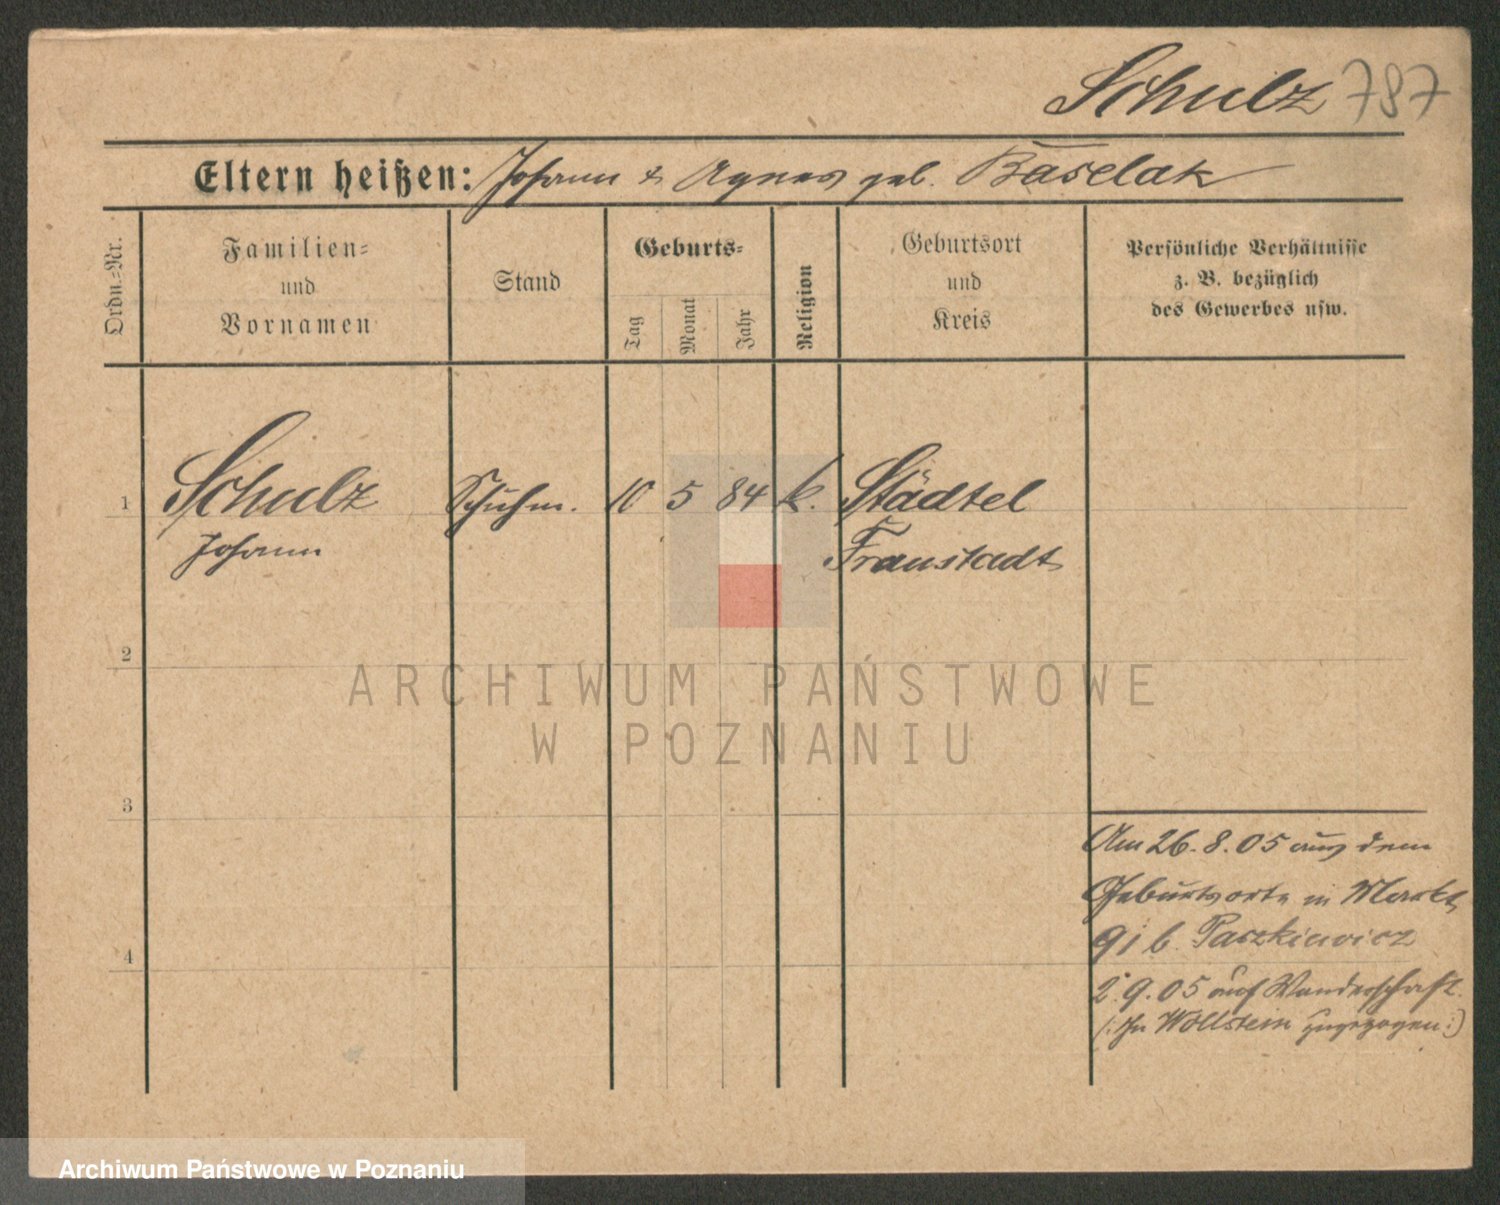 Schulz 787
Eltern heißen: Johann & Agnes geb. Baselak
Ordn.=Nr.
Familien=
und
Vornamen
Stand
Geburts=
Tag
Monat
Jahr
Religion
Geburtsort
und
Kreis
Persönliche Verhältnisse
z. B. bezüglich
des Gewerbes usw.
1 Schulz Schuhm. 10 5 84 k. Städtel
Johann Fraustadt
2
3
4
Am 26. 8. 05 aus dem
Geburtsorte in Markt
9 i b. Paszkiewicz
2. 9. 05 auf Wanderschaft.
(: In Wollstein zugezogen :)
ARCHIWUM PAŃSTWOWE
W POZNANIU
Archiwum Państwowe w Poznaniu